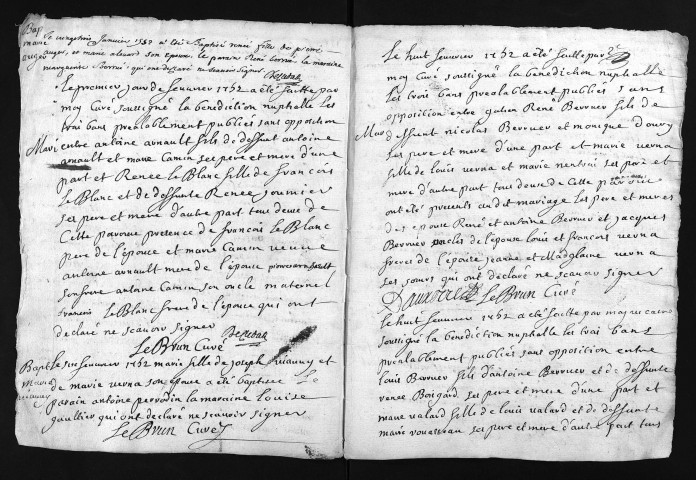 Bap
marie
auger
Le vingt trois Janvier 1752 a été Baptisé renée fille de pierre
auger, et marie alouard son Epouse, le parain René la maraine
marguerite qui ont déclaré ne scavoir Signer
Le premier jour de feuvrier 1752 a été faitte par
moy Curé soussigné la benediction nuptialle les
trois bans prealablement publiés sans opposition
Mari entre antoine arnault fils de deffunt antoine
arnault et marie Camin ses pere et mere d'une
part et Renée le Blanc fille de francois
le Blanc et de deffunte Renée fournier
ses pere et mere d'autre part tous deux de
Cette paroisse presence de francois le Blanc
pere de l'epouce et marie Camin veuve
antoine arnault mere de l'epoux
son frere antoine Camin son oncle maternel
francois le Blanc frere de l'epouce qui ont
déclaré ne scavoir signer
Le Brun Curé
Bapt
Marie
Le six feuvrier 1752 marie fille de joseph mauny et
de marie verna son epouce a été baptisée Le
parain antoine perrodin la maraine Louise
gaultier qui ont declaré ne scavoir signer
Le Brun Curé
Le huit feuvrier 1752 a été faitte par
moy Curé soussigné la benediction nuptialle
les trois bans prealablement publiés sans
opposition entre René Berruer fils de
Mar deffunt nicolas Berruer et monique
ses pere et mere d'une part et marie verna
fille de louis verna et marie ses pere et
mere d'autre part tous deux de Cette paroisse
ont été presents audit mariage les pere et meres
des epoux René et antoine Berruer et jacques
Berruer oncles de l'epoux louis et francois verna
freres de l'epouse jeanne et Magdelaine verna
ses soeurs qui ont declaré ne scavoir signer
Le Brun Curé
Le huit feuvrier 1752 a été faitte par moy Curé
soussigné la benediction nuptialle les trois bans
prealablement publiés sans opposition entre
louis Berruer fils d'antoine Berruer et de deffunte
renée ses pere et mere d'une part et
marie valard fille de louis valard et de deffunte
marie ses pere et mere d'autre part tous